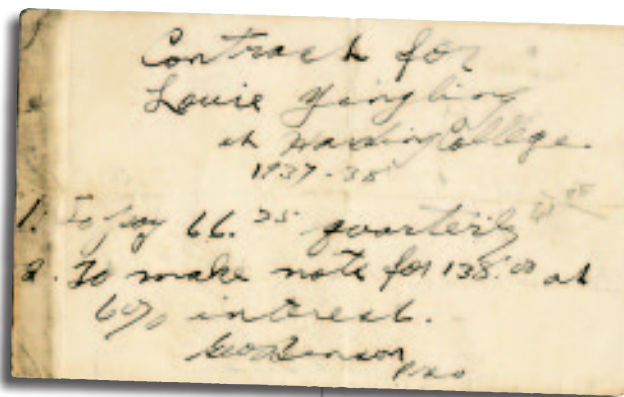 Contract for
Louie Yingling
at Harding College.
1937-38
1. To pay 66.25 quarterly
2. To make note for 135.00 at
6% interest.
Geo Benson
Pres